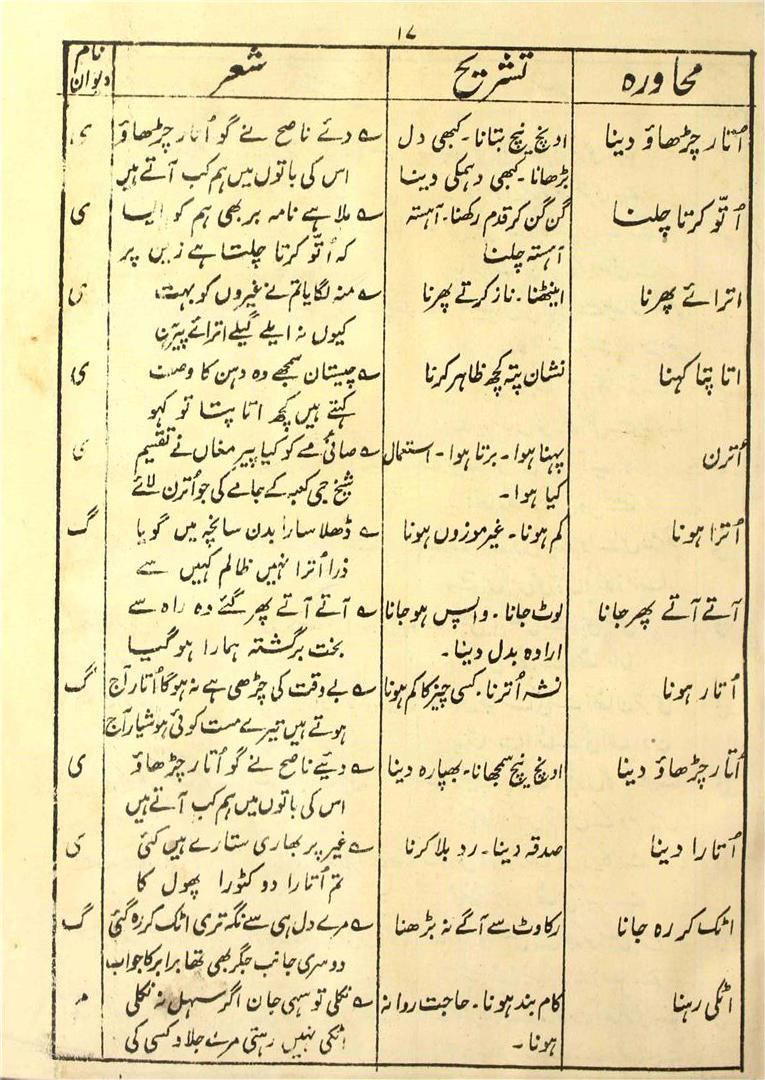 ۱۷
محاورہ تشریح شعر نام دیوان
اُتار چڑھاؤ دینا اونچ نیچ بتانا۔ کبھی دل ؎ دئے ناصح نے گو اُتار چڑھاؤ ی
بڑھانا۔ کبھی دہمکی دینا اس کی باتوں میں ہم کب آتے ہیں
اُتّو کرتا چلنا گن گن کر قدم رکھنا۔ آہستہ ؎ ملا ہے نامہ بر بھی ہم کو ایسا ی
آہستہ چلنا کہ اُتّو کرتا چلتا ہے زمین پر
اترائے پھرنا اینٹھنا۔ ناز کرتے پھرنا ؎ منہ لگایا تم نے غیروں کو بہت ی
کیوں نہ ایلے گیلے اترائے پھریں
اتا پتا کہنا نشان پتہ کچھ ظاہر کرنا ؎ چیستان سمجھے وہ دہن کا وصف ی
کہتے ہیں کچھ اتا پتا تو کہو
اُترن پہنا ہوا۔ برتا ہوا۔ استعمال ؎ صافیٔ مے کو کیا پیر مغاں نے تقسیم ی
کیا ہوا۔ شیخ جی کعبہ کے جامے کی جو اُترن لائے
اُترا ہونا کم ہونا۔ غیر موزوں ہونا ؎ ڈھلا سارا بدن سانچہ میں گویا گ
ذرا اُترا نہیں ظالم کہیں سے
آتے آتے پھر جانا لوٹ جانا۔ واپس ہو جانا ؎ آتے آتے پھر گئے وہ راہ سے
ارادہ بدل دینا۔ بخت برگشتہ ہمارا ہو گیا
اُتار ہونا نشہ اُترنا۔ کسی چیز کا کم ہونا ؎ بے وقت کی چڑھی ہے نہ ہو گا اُتار آج گ
ہوتے ہیں تیرے مست کوئی ہوشیار آج
اُتار چڑھاؤ دینا اونچ نیچ سمجھانا۔ بھپارہ دینا ؎ دیئے ناصح نے گو اُتار چڑھاؤ ی
اس کی باتوں میں ہم کب آتے ہیں
اُتارا دینا صدقہ دینا۔ رد بلا کرنا ؎ غیر پر بھاری ستارے ہیں کئی ی
تم اُتارا دو کٹورا پھول کا
اٹک کر رہ جانا رکاوٹ سے آگے نہ بڑھنا ؎ مرے دل ہی سے نگہ تری اٹک کر رہ گئی گ
دوسری جانب جگر بھی تھا برابر کا جواب
اٹکی رہنا کام بند ہونا۔ حاجت روا نہ ؎ نکلی تو سہی جان اگر سہل نہ نکلی م
ہونا۔ اٹکی نہیں رہتی مرے جلاد کسی کی